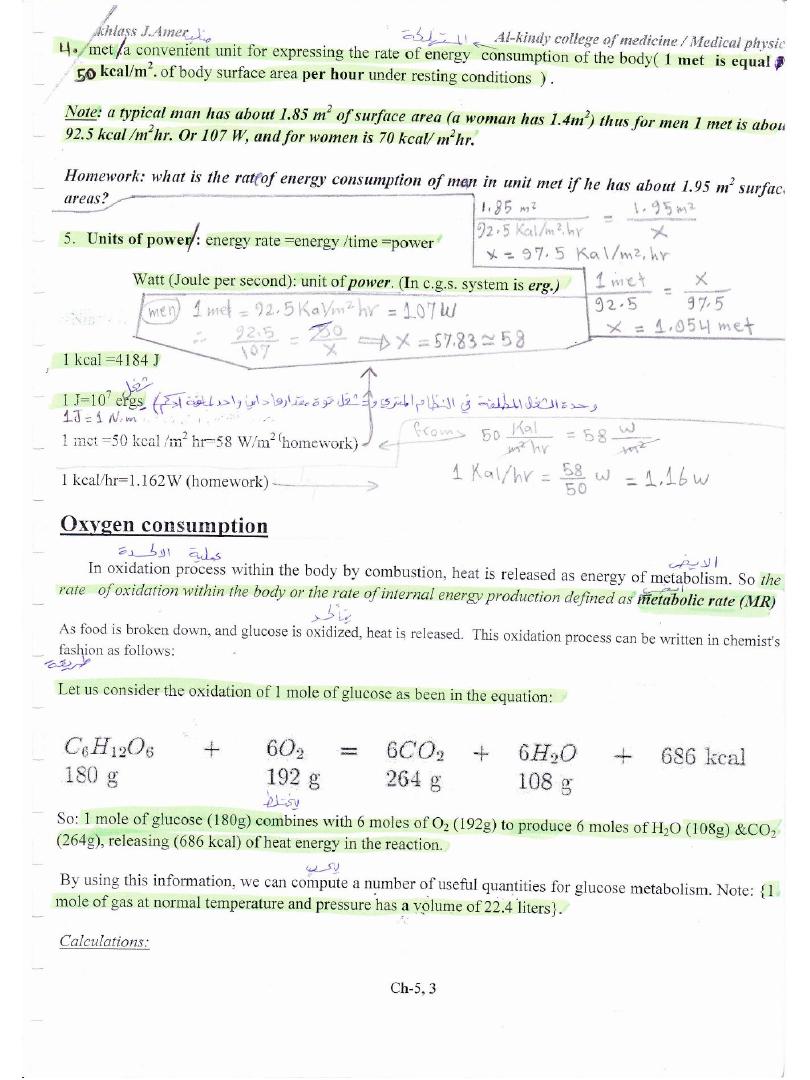 khlass J.Amer
Al-kindy college of medicine / Medical physic
4. met/a convenient unit for expressing the rate of energy consumption of the body( 1 met is equal
50 kcal/m². of body surface area per hour under resting conditions ) .
Note: a typical man has about 1.85 m² of surface area (a woman has 1.4m²) thus for men 1 met is abou
92.5 kcal /m²hr. Or 107 W, and for women is 70 kcal/ m²hr.
Homework: what is the rate of energy consumption of man in unit met if he has about 1.95 m² surfac
areas?
1.85 m² / 92.5 Kal/m².hr = 1.95 m² / x
x = 97.5 Kal/m².hr
5. Units of power/: energy rate =energy /time =power
Watt (Joule per second): unit of power. (In c.g.s. system is erg.)
1 met / 92.5 = x / 97.5
x = 1.054 met
men 1 met = 92.5 Kal/m² hr = 107 W
∴ 92.5 / 107 = 50 / x ⇒ x = 57.83 ≃ 58
1 kcal =4184 J
شغل
1 J=10⁷ ergs
وحدة الشغل المطلقة في النظام المتري
1J = 1 N.m
1 met =50 kcal /m² hr=58 W/m² (homework)
from 50 Kal / m² hr = 58 W / m²
1 kcal/hr=1.162W (homework)
1 Kal/hr = 58 / 50 w = 1.16 w
Oxygen consumption
عملية الاكسدة
الايض
In oxidation process within the body by combustion, heat is released as energy of metabolism. So the
rate of oxidation within the body or the rate of internal energy production defined as metabolic rate (MR)
يتأكسد
As food is broken down, and glucose is oxidized, heat is released. This oxidation process can be written in chemist's
fashion as follows:
طريقة
Let us consider the oxidation of 1 mole of glucose as been in the equation:
C₆H₁₂O₆ + 6O₂ = 6CO₂ + 6H₂O + 686 kcal
180 g 192 g 264 g 108 g
يختلط
So: 1 mole of glucose (180g) combines with 6 moles of O₂ (192g) to produce 6 moles of H₂O (108g) &CO₂
(264g), releasing (686 kcal) of heat energy in the reaction.
يحسب
By using this information, we can compute a number of useful quantities for glucose metabolism. Note: {1
mole of gas at normal temperature and pressure has a volume of 22.4 liters}.
Calculations:
Ch-5, 3